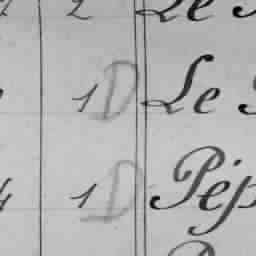 2 Le
1 D Le
4 1 D Pép